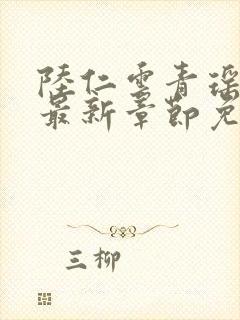 陸仁雲青瑶
最新章節免
三柳